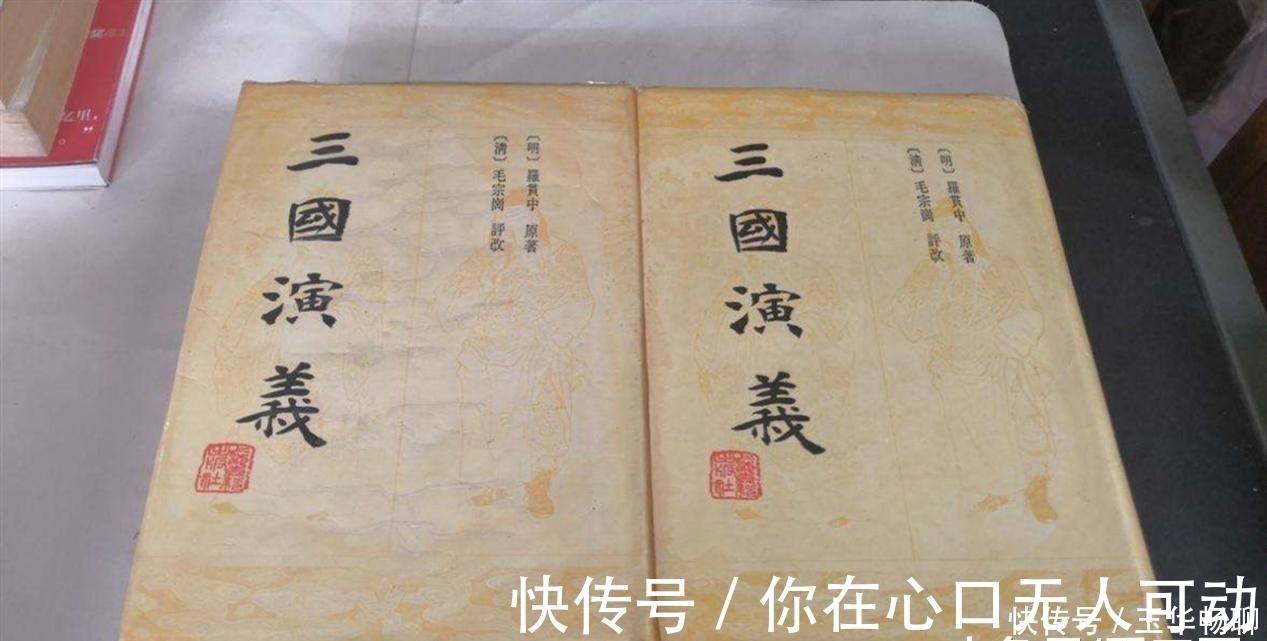 三國演義
〔明〕羅貫中 原著
〔清〕毛宗崗 評改
三國演義
〔明〕羅貫中 原著
〔清〕毛宗崗 評改
快传号 / 你在心口无人可动
快传号 / 玉华畅聊